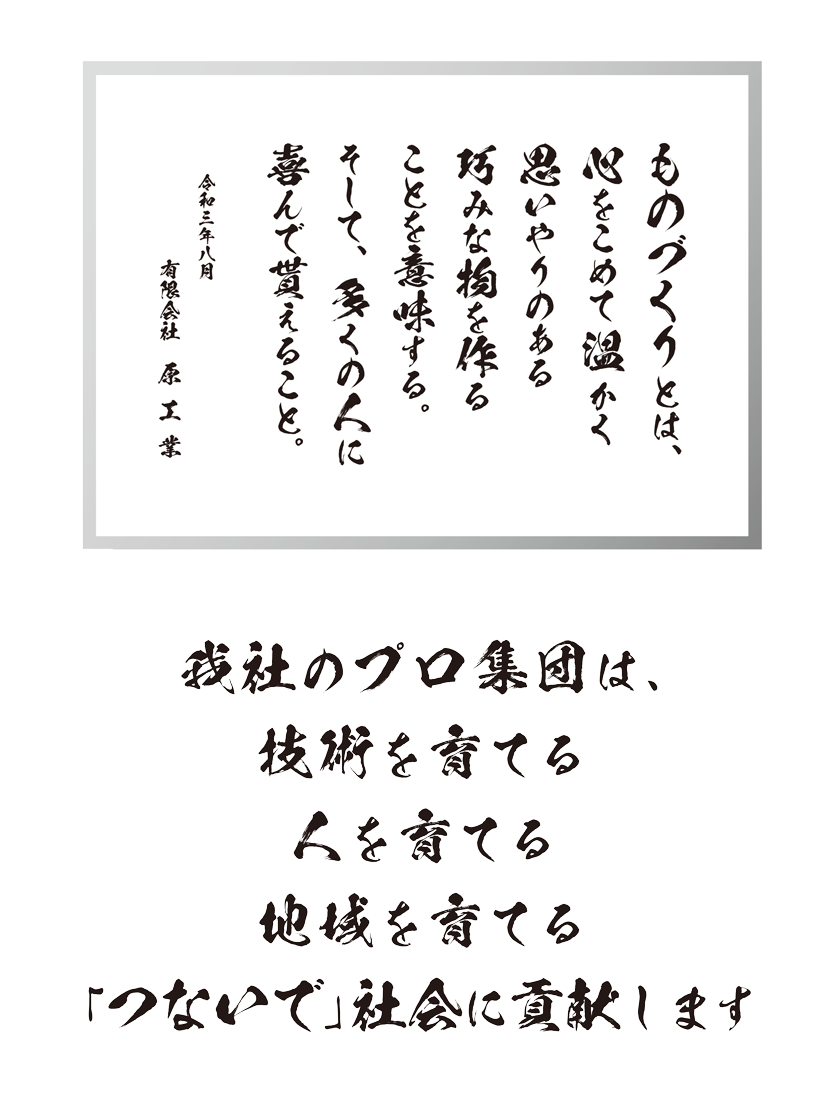 ものづくりとは、
心をこめて温かく
思いやりのある
巧みな物を作る
ことを意味する。
そして、多くの人に
喜んで貰えること。
令和三年八月
有限会社 原工業
我社のプロ集団は、
技術を育てる
人を育てる
地域を育てる
「つないで」社会に貢献します